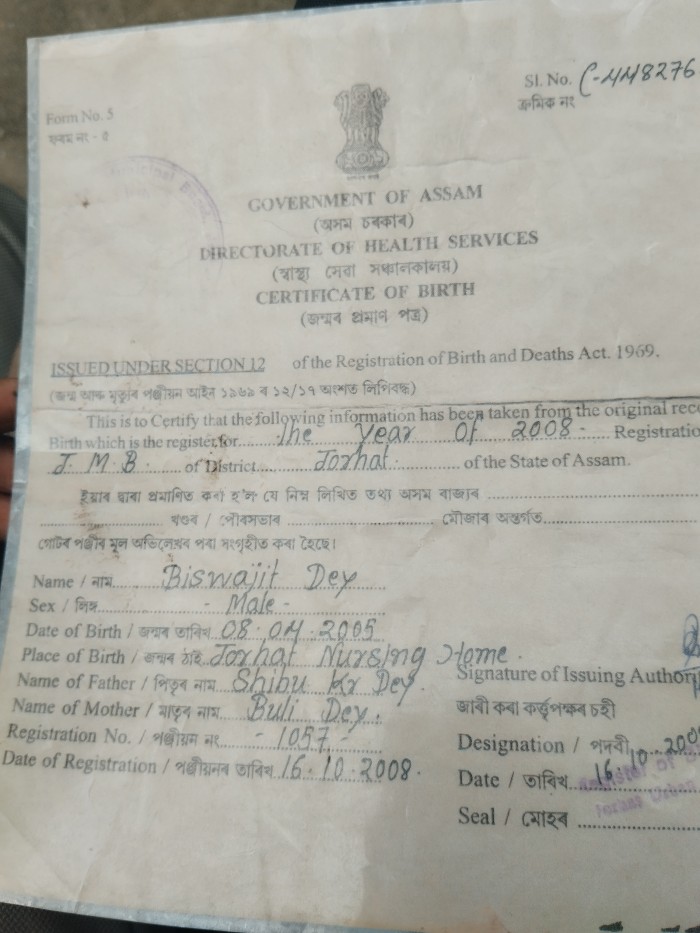 Sl. No. C-448276
ক্ৰমিক নং
Form No. 5
ফৰম নং - ৫
GOVERNMENT OF ASSAM
(অসম চৰকাৰ)
DIRECTORATE OF HEALTH SERVICES
(স্বাস্থ্য সেৱা সঞ্চালকালয়)
CERTIFICATE OF BIRTH
(জন্মৰ প্ৰমাণ পত্ৰ)
ISSUED UNDER SECTION 12 of the Registration of Birth and Deaths Act. 1969.
(জন্ম আৰু মৃত্যুৰ পঞ্জীয়ন আইন ১৯৬৯ ৰ ১২/১৭ অংশত লিপিবদ্ধ)
This is to Certify that the following information has been taken from the original reco
Birth which is the register for the year of 2008 - Registratio
J. M. B. of District Jorhat of the State of Assam.
ইয়াৰ দ্বাৰা প্ৰমাণিত কৰা হ'ল যে নিম্ন লিখিত তথ্য অসম ৰাজ্যৰ
খণ্ডৰ / পৌৰসভাৰ মৌজাৰ অন্তৰ্গত
গোটৰ পঞ্জীৰ মূল অভিলেখৰ পৰা সংগৃহীত কৰা হৈছে।
Name / নাম Biswajit Dey
Sex / লিঙ্গ - Male -
Date of Birth / জন্মৰ তাৰিখ 08.04.2005
Place of Birth / জন্মৰ ঠাই Jorhat Nursing Home.
Name of Father / পিতৃৰ নাম Shibu Kr Dey.
Name of Mother / মাতৃৰ নাম Buli Dey.
Registration No. / পঞ্জীয়ন নং - 1057 -
Date of Registration / পঞ্জীয়নৰ তাৰিখ 16.10.2008.
Signature of Issuing Authori
জাৰী কৰা কৰ্ত্তৃপক্ষৰ চহী
Designation / পদবী
Date / তাৰিখ 16.10.200
Seal / মোহৰ